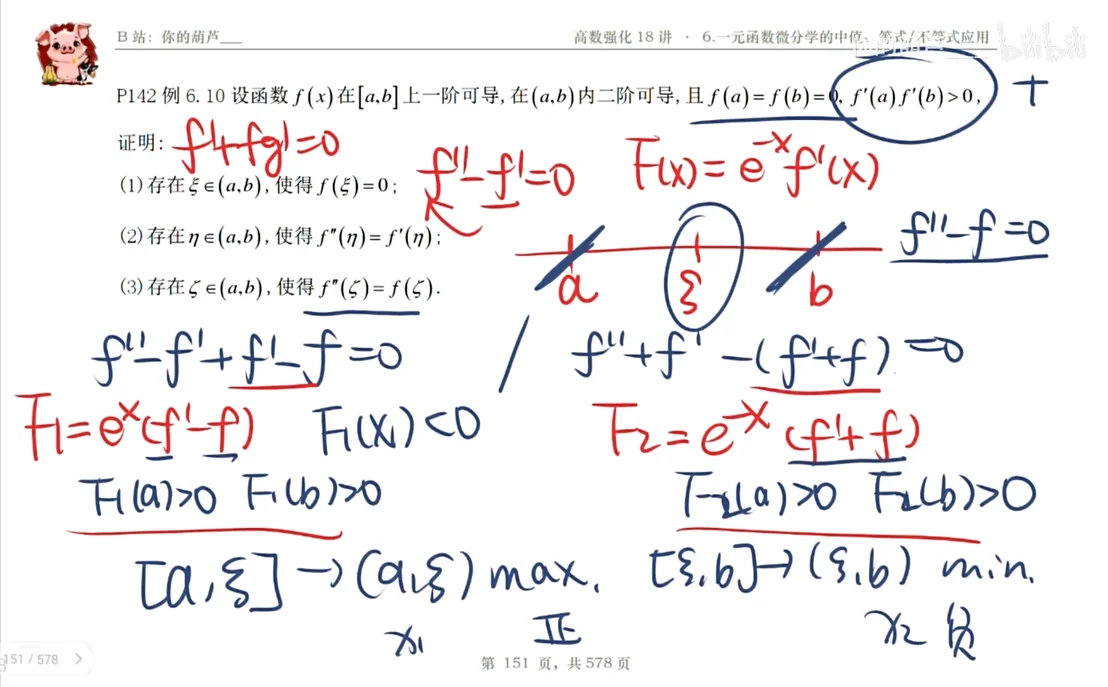 B 站：你的葫芦___
高数强化 18 讲 · 6.一元函数微分学的中值、等式/不等式应用
bilibili
P142 例 6.10 设函数 f(x) 在 [a,b] 上一阶可导，在 (a,b) 内二阶可导，且 f(a)=f(b)=0，f′(a)f′(b)>0，
+
证明：
f'+fg'=0
(1) 存在 ξ∈(a,b)，使得 f(ξ)=0；
f''-f'=0
F(x)=e^{-x}f'(x)
(2) 存在 η∈(a,b)，使得 f″(η)=f′(η)；
f''-f=0
a ξ b
(3) 存在 ζ∈(a,b)，使得 f″(ζ)=f(ζ).
f''-f'+f'-f=0
f''+f'-(f'+f)=0
F₁=e^x(f'-f) F₁(x₁)<0
F₂=e^{-x}(f'+f)
F₁(a)>0 F₁(b)>0
F₂(a)>0 F₂(b)>0
[a,ξ]→(a,ξ) max.
[ξ,b]→(ξ,b) min.
x₁ 正
x₂ 负
151 / 578 >
第 151 页，共 578 页